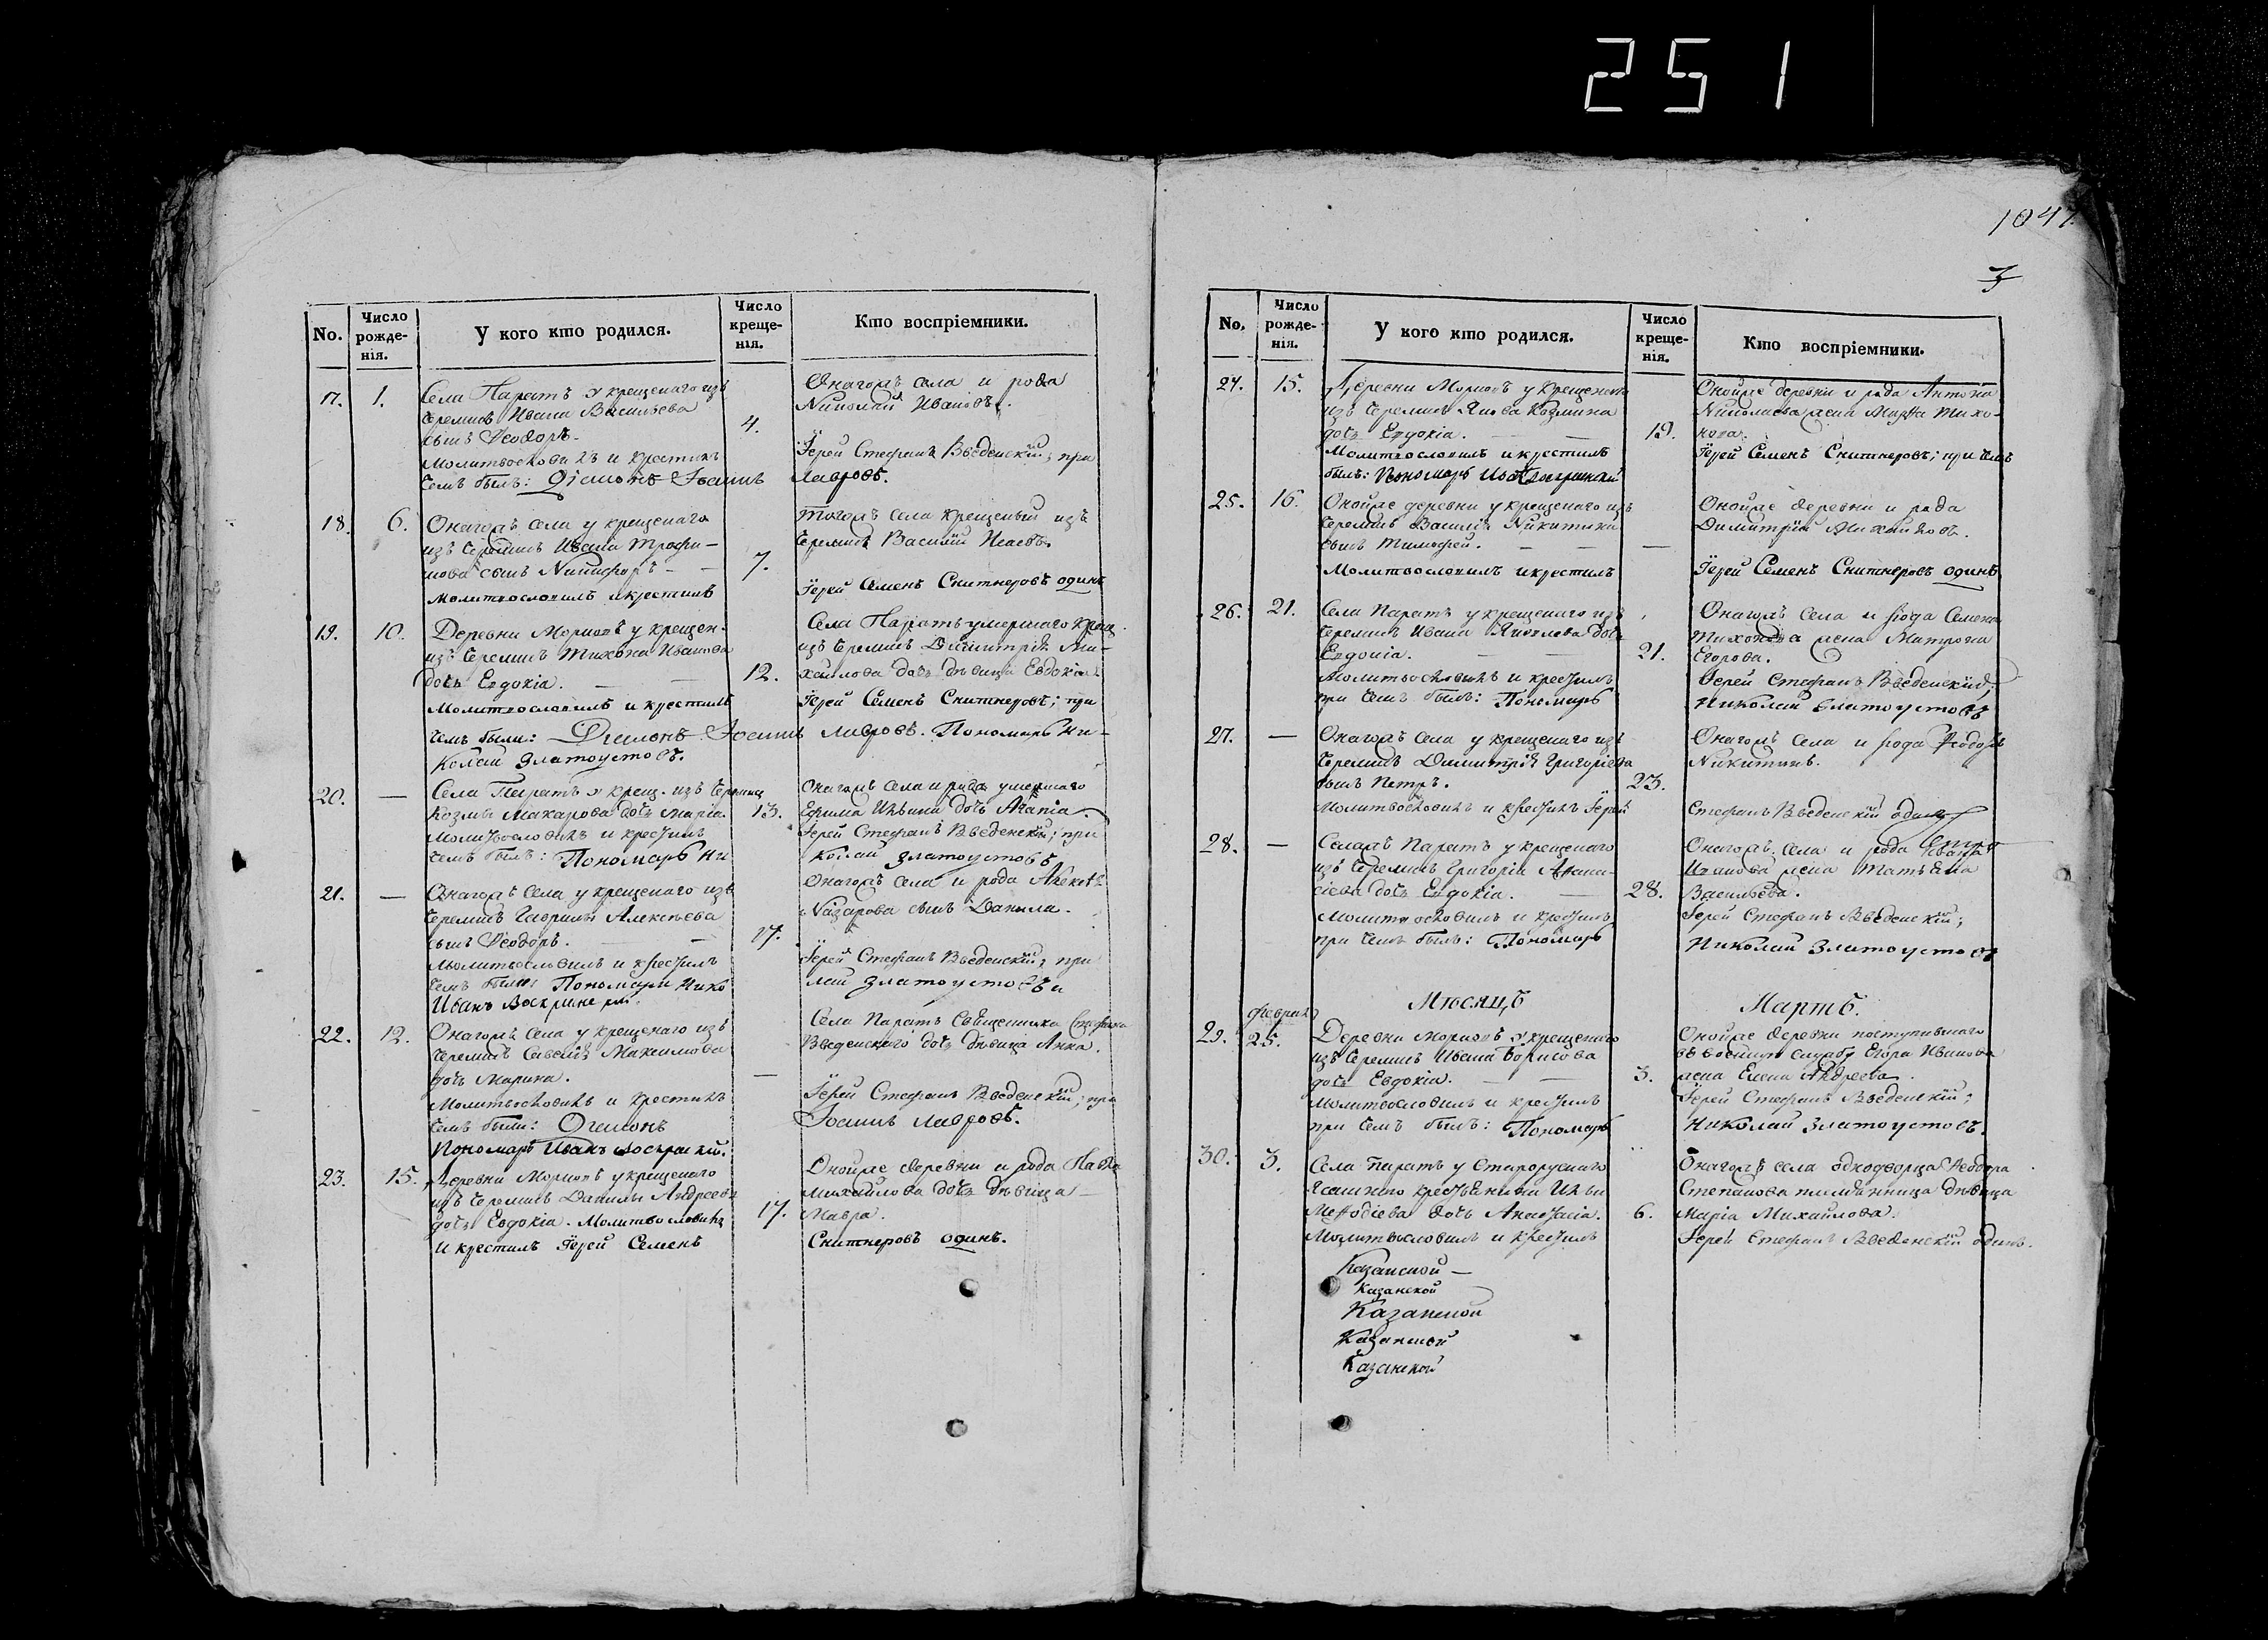 251
1047.
3
No.
Число рожде-нія.
У кого кто родился.
Число креще-нія.
Кто воспріемники.
17.
1.
Села Паратъ у крещенаго изъ
Черемисъ Ивана Васильева
сынъ Ѳеодоръ.
Молитвословилъ и крестилъ
чемъ былъ: Діаконъ Іоаннъ
4.
Онагожъ села и рода
Николай Ивановъ.
Іерей Стефанъ Введенскій; при
Лавровъ.
18.
6.
Онагожъ села у крещенаго
изъ Черемисъ Ивана Трофи-
мова сынъ Никифоръ
Молитвословилъ и крестилъ
7.
Тогожъ села крещеный изъ
Черемисъ Василій Исаевъ.
Іерей Семенъ Снитнеровъ одинъ
19.
10.
Деревни у крещен.
изъ Черемисъ Тихона Иванова
дочь Евдокіа.
Молитвословилъ и крестилъ
чемъ были: Діаконъ Іоаннъ
колай Златоустовъ.
12.
Села Паратъ умершаго крещ.
изъ Черемисъ Димитрія Ми-
хайлова дочь дѣвица Евдокіа
Іерей Семенъ Снитнеровъ; при
Лавровъ. Пономарь Ни-
20.
—
Села Паратъ у крещ. изъ Черемисъ
Козмы Макарова дочь Маріа.
Молитвословилъ и крестилъ
чемъ былъ: Пономарь Ни
13.
Онагожъ села и рода умершаго
Ефима Ильина дочь
Іерей Стефанъ Введенскій; при
колай Златоустовъ
21.
—
Онагожъ села у крещенаго изъ
Черемисъ Гаврилы Алексѣева
сынъ Ѳеодоръ.
Молитвословилъ и крестилъ
чемъ были: Пономари Нико
Иванъ
17.
Онагожъ села и рода
Назарова сынъ Данила.
Іерей Стефанъ Введенскій; при
лай Златоустовъ и
22.
12.
Онагожъ села у крещенаго изъ
Черемисъ Савелія Максимова
дочь Марина.
Молитвословилъ и крестилъ
чемъ были: Діаконъ
Пономарь Иванъ
—
Села Паратъ Священника Стефана
Введенского дочь дѣвица Анна.
Іерей Стефанъ Введенскій; при
Іоаннъ Лавровъ.
23.
15.
Деревни у крещенаго
изъ Черемисъ Данилы Андреева
дочь Евдокіа. Молитвословилъ
и крестилъ Іерей Семенъ
17.
Онойже деревни и рода Павла
Михайлова дочь дѣвица
Мавра.
Снитнеровъ одинъ.
No.
Число рожде-нія.
У кого кто родился.
Число креще-нія.
Кто воспріемники.
24.
15.
Деревни у крещенаго
изъ Черемисъ Якова Козмина
дочь Евдокіа.
Молитвословилъ и крестилъ
былъ: Пономарь
19.
Онойже деревни и рода Антона
Николаева жена Марѳа Тихо-
нова.
Іерей Семенъ Снитнеровъ; при чемъ
25.
16.
Онойже деревни у крещенаго изъ
Черемисъ Василія Никитина
сынъ Тимофей.
Молитвословилъ и крестилъ
—
Онойже деревни и рода
Димитрій Михайловъ.
Іерей Семенъ Снитнеровъ одинъ
26.
21.
Села Паратъ у крещенаго изъ
Черемисъ Ивана Яковлева дочь
Евдокіа.
Молитвословилъ и крестилъ
при чемъ былъ: Пономарь
21.
Онагожъ села и рода Семена
Тихонова жена Матрона
Егорова.
Іерей Стефанъ Введенскій;
Николай Златоустовъ
27.
—
Онагожъ села у крещенаго изъ
Черемисъ Димитрія Григоріева
сынъ Петръ.
Молитвословилъ и крестилъ Іерей
23.
Онагожъ села и рода Ѳеодоръ
Никитинъ.
Стефанъ Введенскій одинъ
28.
—
Селажъ Паратъ у крещенаго
изъ Черемисъ Григорія Аѳана-
сіева дочь Евдокіа.
Молитвословилъ и крестилъ
при чемъ былъ: Пономарь
28.
Онагожъ села и рода Ивана
Иванова жена Татьяна
Васильева.
Іерей Стефанъ Введенскій;
Николай Златоустовъ
Мѣсяцъ
Мартъ.
29.
Февраля
25.
Деревни у крещенаго
изъ Черемисъ Ивана Борисова
дочь Евдокіа.
Молитвословилъ и крестилъ
при чемъ былъ: Пономарь
3.
Онойже деревни поступившаго
въ военную службу Егора Иванова
жена Елена Андреева.
Іерей Стефанъ Введенскій;
Николай Златоустовъ.
30.
3.
Села Паратъ у Старорускаго
Ясашного крестьянина Ильи
Меѳодіева дочь Анастасіа.
Молитвословилъ и крестилъ
6.
Онагожъ села однодворца Ѳеодора
Степанова племянница дѣвица
Маріа Михайлова.
Іерей Стефанъ Введенскій одинъ.
Казанской —
Казанской
Казанской
Казанской
Казанской